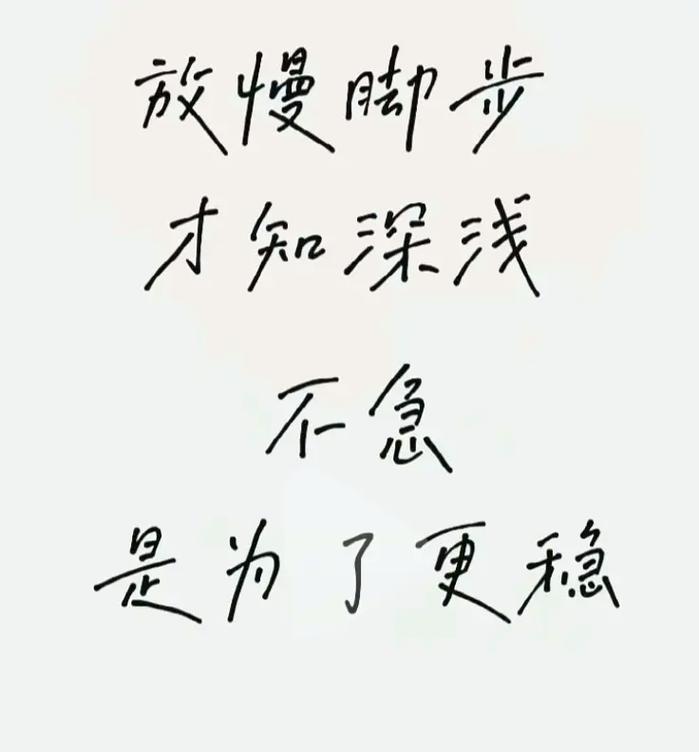 放慢脚步
才知深浅
不急
是为了更稳